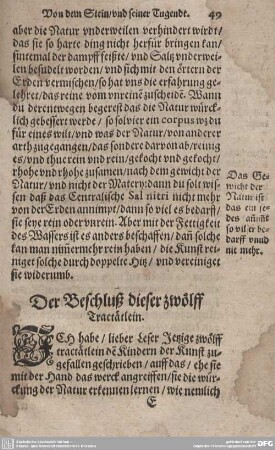 Von dem Stein/vnd seiner Tugendt. 49
aber die Natur vnderweilen verhindert wirdt/
das sie so harte ding nicht herfür bringen kan/
sintemal der dampff feißte/ vnd Saltz vnderwei-
len besudelt worden/ vnd sich mit den örtern der
Erden vermischen/ so hat vns die erfahrung ge-
lehrt/ das reine vom vnreinē zuscheidē. Wann
du derentwegen begerest das die Natur würck-
lich gebessert werde / so solvier ein corpus wz du
für eines wilt/ vnd was der Natur/ von anderer
arth zugegangen/ das sondere darvon ab/ reinig
es/ vnd thue rein vnd rein/ gekocht vnd gekocht/
rhohe vnd rhohe zusamen/ nach dem gewicht der
Natur/ vnd nicht der Matery: dann du solt wis-
sen daß das Centralische Sal nitri nicht mehr
von der Erden annimpt/ dann so viel es bedarff/
sie seye rein oder vnrein. Aber mit der Fettigkeit
des Wassers ist es anders beschaffen/ dañ solche
kan man nim̄ermehr rein haben / die Kunst rei-
niget solche durch doppelte Hitz/ vnd vereiniget
sie widerumb.
Das Ge-
wicht der
Natur ist
das ein je-
des
so vil er be-
darff vnnd
nit mehr.
Der Beschluß dieser zwölff
Tractätlein.
ICH habe / lieber Leser Jetzige zwölff
tractätlein dē Kindern der Kunst zu-
gefallen geschrieben / auff das / ehe sie
mit der Hand das werck angreiffen/ sie die wür-
ckung der Natur erkennen lernen / wie nemlich
E
DFG